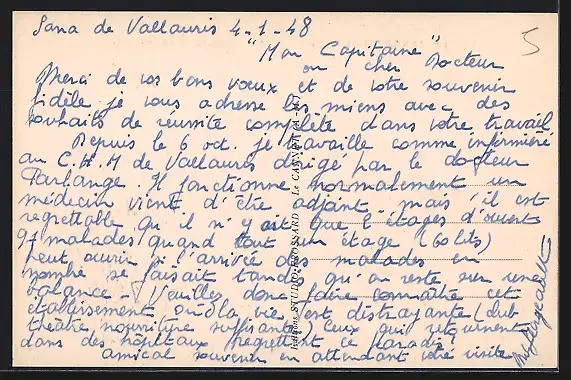 Sana de Vallauris 4-1-48
"Mon Capitaine"
ou cher Docteur
Merci de vos bons voeux et de votre souvenir
fidèle je vous adresse les miens avec des
souhaits de réussite complète dans votre travail
Depuis le 6 oct. je travaille comme infirmière
au C.H.M de Vallauris dirigé par le docteur
Parlange. Il fonctionne normalement un
médecin vient d'être adjoint mais s'il est
regrettable qu'il n'y ait que 2 étages d'ouverts
97 malades/quand tout un étage (60 lits)
peut ouvrir si l'arrivée des malades en
nombre se faisait tandis qu'on reste sur une
balance - Veuillez donc faire connaître cet
établissement où la vie est distrayante (club
théâtre, nourriture suffisante) Ceux qui séjournent
dans des hôpitaux regrettent ce paradis
amical souvenir en attendant votre visite
Editions STUDIO BROSSARD Le CANNET
5